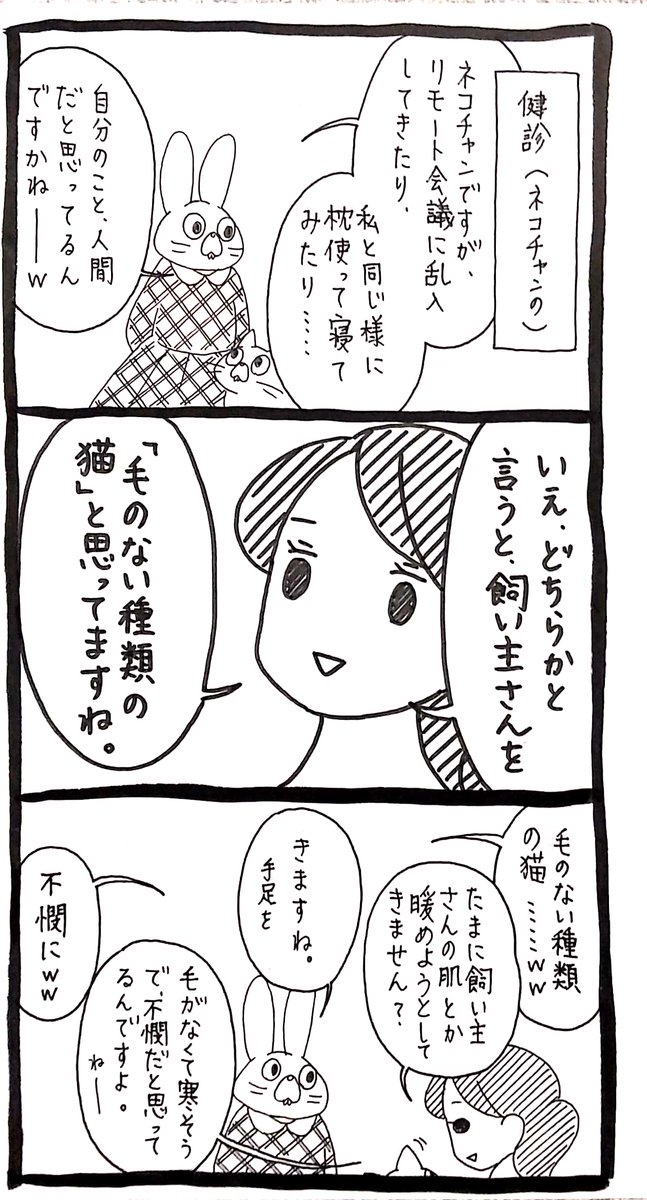 健診(ネコチャンの)
ネコチャンですが、
リモート会議に乱入
してきたり、
私と同じ様に
枕使って寝て
みたり……
自分のこと、人間
だと思ってるん
ですかね――w
いえ、どちらかと
言うと、飼い主さんを
「毛のない種類の
猫」と思ってますね。
毛のない種類
の猫……ww
たまに飼い主
さんの肌とか
暖めようとして
きません?
きますね。
手足を
毛がなくて寒そう
で、不憫だと思って
るんですよ。
ねー
不憫にww